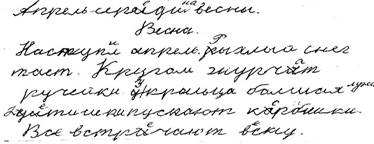 Апрель середина весны.
Весна.
Наступил апрель. Рыхлый снег
тает. Кругом журчат
ручейки. У крыльца большая лужа.
Дети пускают кораблики.
Все встречают весну.